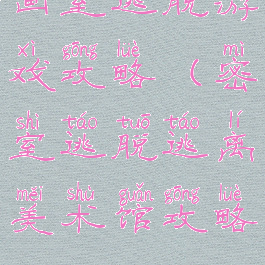 画室逃脱游
xì gōng lüè mì
戏攻略(密
shì táo tuō táo lí
室逃脱逃离
měi shù guǎn gōng lüè
美术馆攻略